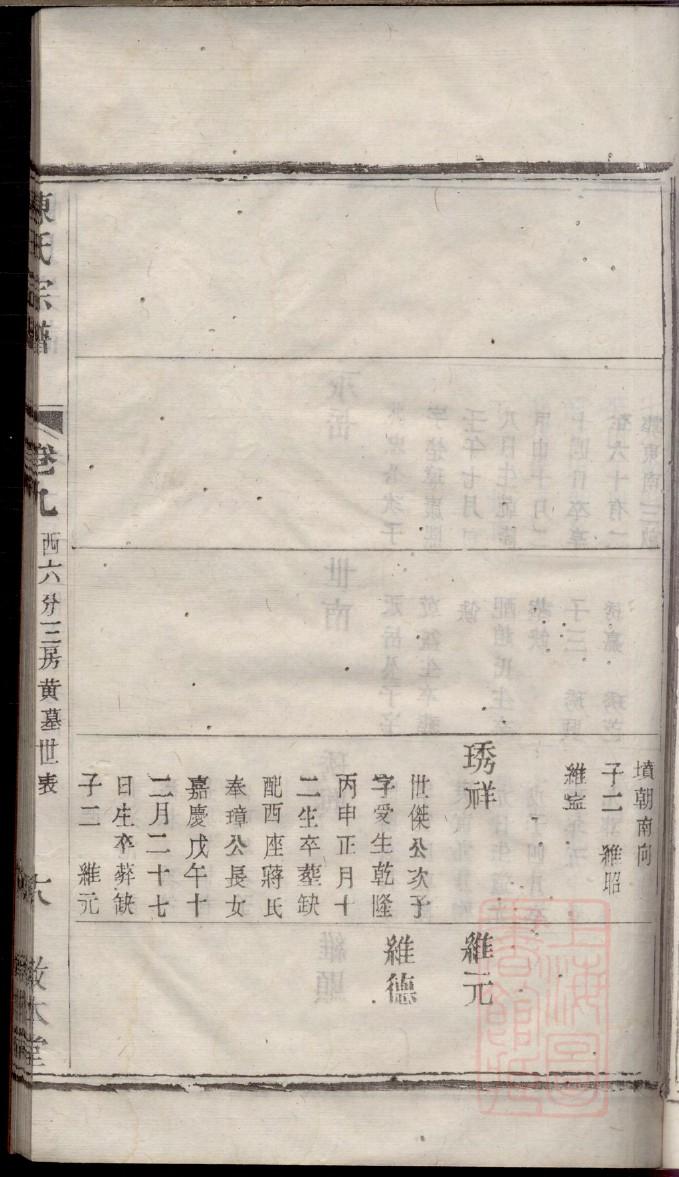 墳朝南向
子二 維昭
維寍
琇祥
世傑公次子
字受生乾隆
丙申正月十
二生卒塟缺
配西座蔣氏
奉璋公長女
嘉慶戊午十
二月二十七
日生卒葬缺
子二 維元
維元
維德
陳氏宗譜
卷九
西六分三房黃墓世表
敦本堂
上海圖書館藏